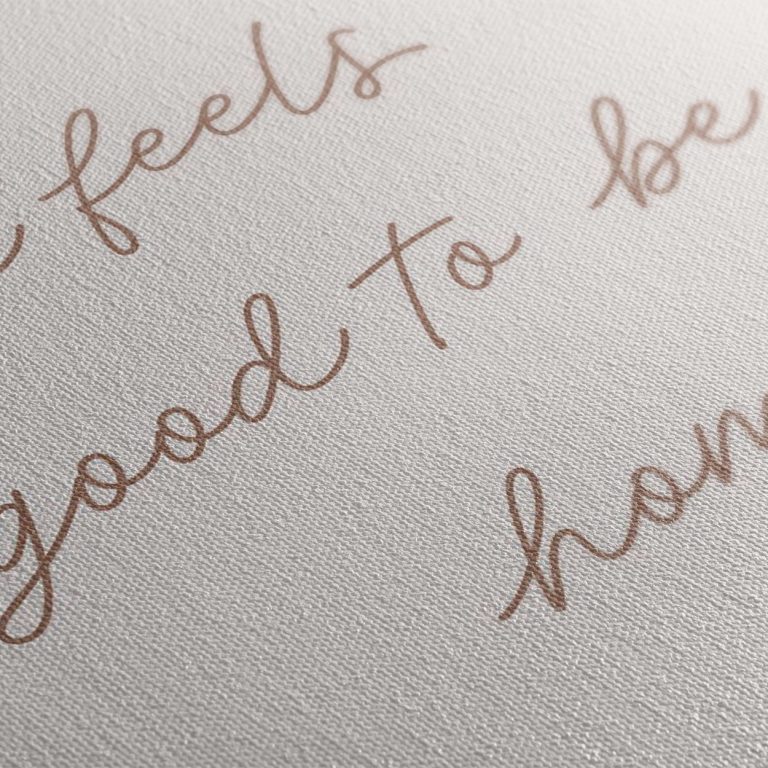 feels
good to be
hom